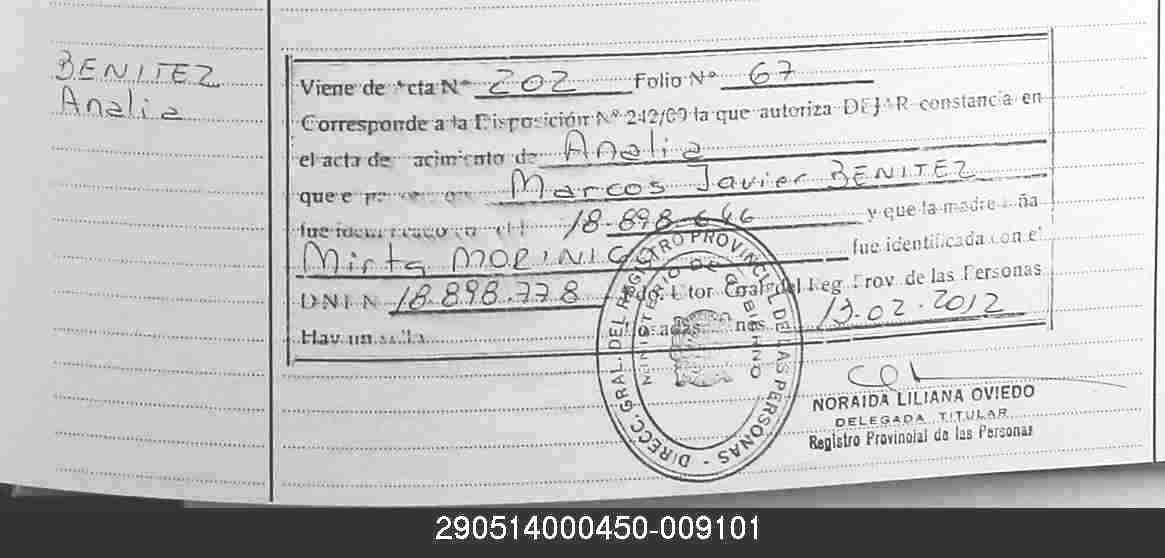 BENITEZ
Analia
Viene de Acta Nº 202 Folio Nº 67
Corresponde a la Disposición Nº 242/09 la que autoriza DEJAR constancia en
el acta de acimiento de Analia
que e Marcos Javier BENITEZ
fue 18.898.646 y que la madre
Mirta MORINIGO fue identificada con el
DNI N 18.898.778 Gral. del Reg. Prov. de las Personas
Hay un sello 13.02.2012
DIRECC. GRAL. DEL REGISTRO PROVINCIAL DE LAS PERSONAS
MINISTERIO DE GOBIERNO
NORAIDA LILIANA OVIEDO
DELEGADA TITULAR
Registro Provincial de las Personas
290514000450-009101